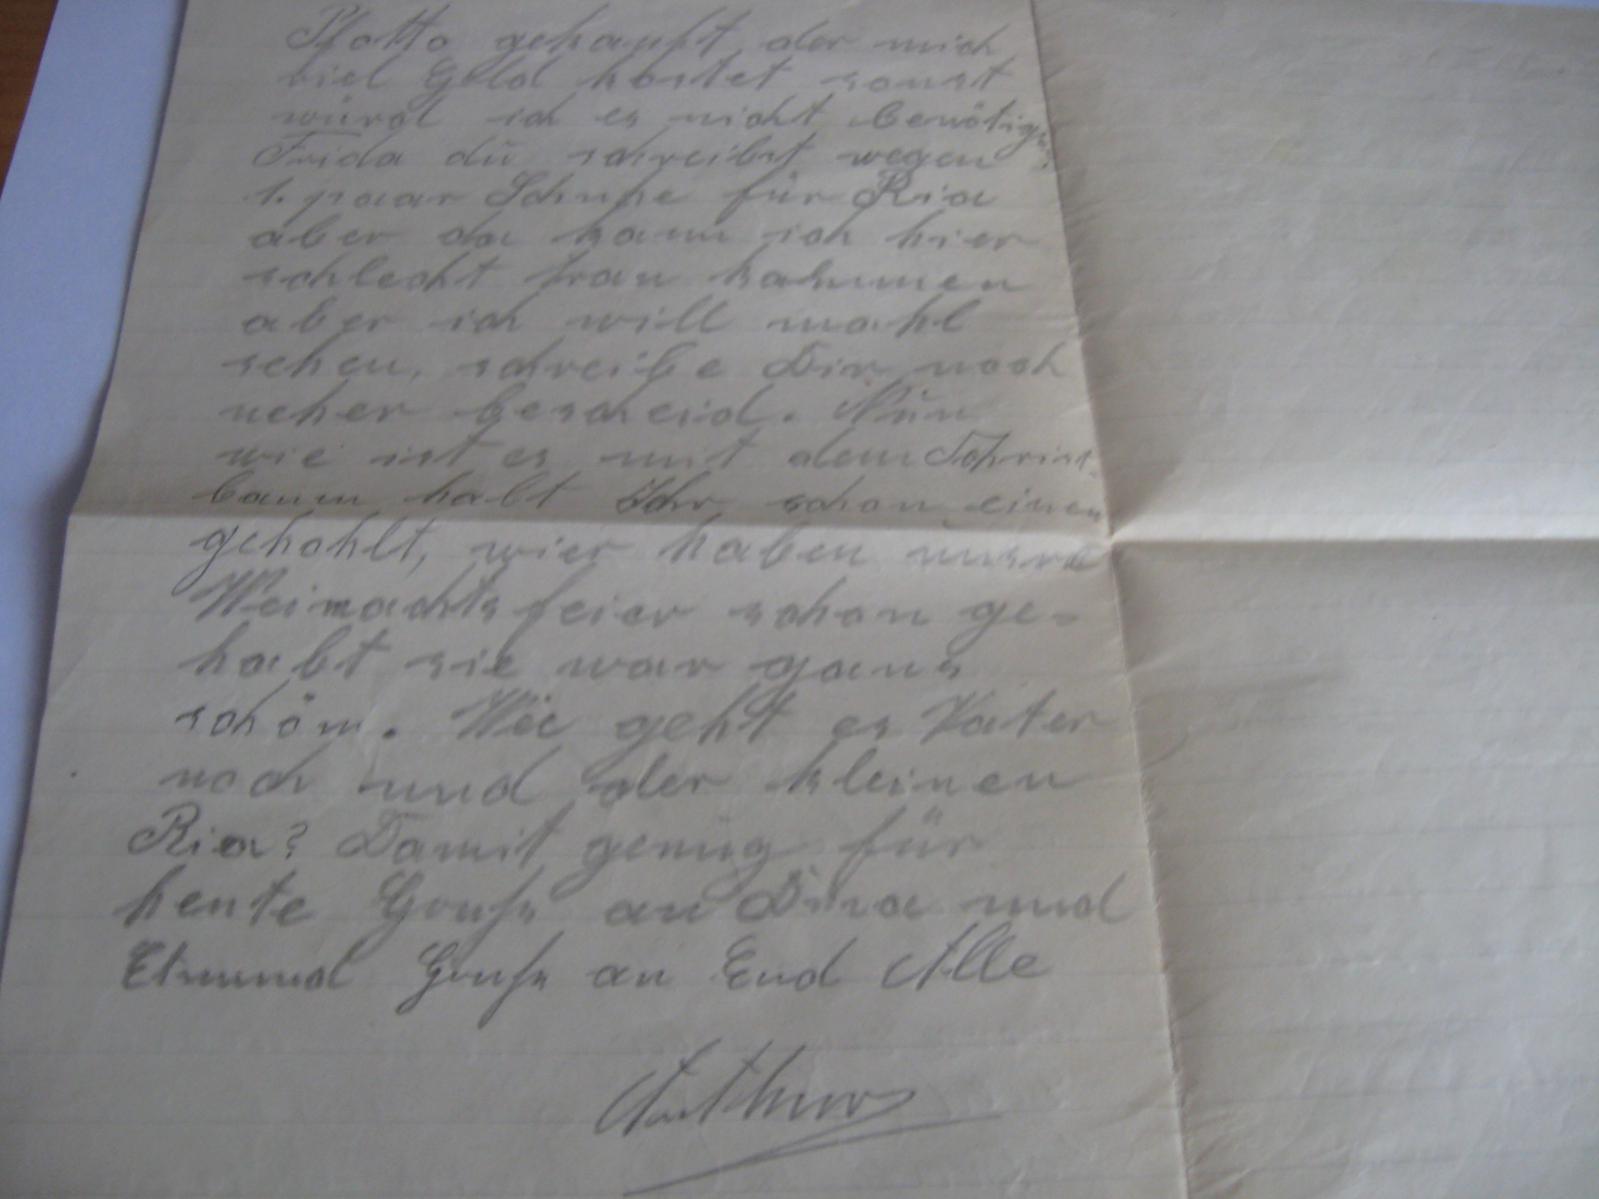 Photto gekauft, der mich
viel Geld kostet sonst
würd ich es nicht benötigen
Frida dü schreibst wegen
1. paar Schuhe für Ria
aber da kann ich hier
schlecht tran kommen
aber ich will mahl
sehen, schreibe Dir noch
neher bescheid. Nün
wie ist es mit dem Schrist-
baum habt Ihr schon einen
gehohlt, wier haben ünsre
Weinachtsfeier schon ge-
habt sie war gans
schön. Wie geht es Vater
noch und der kleinen
Ria? Damit genüg für
heute Gruß an Dina und
Etmund Gruß an Eud Alle
Arthur